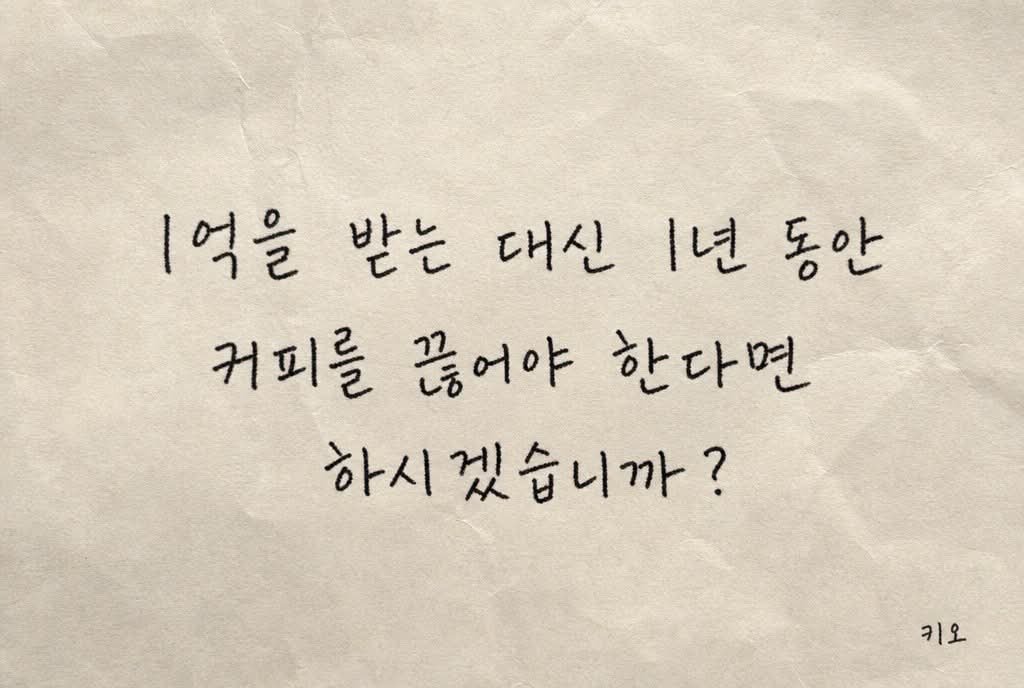 1억을 받는 대신 1년 동안
커피를 끊어야 한다면
하시겠습니까?
키오